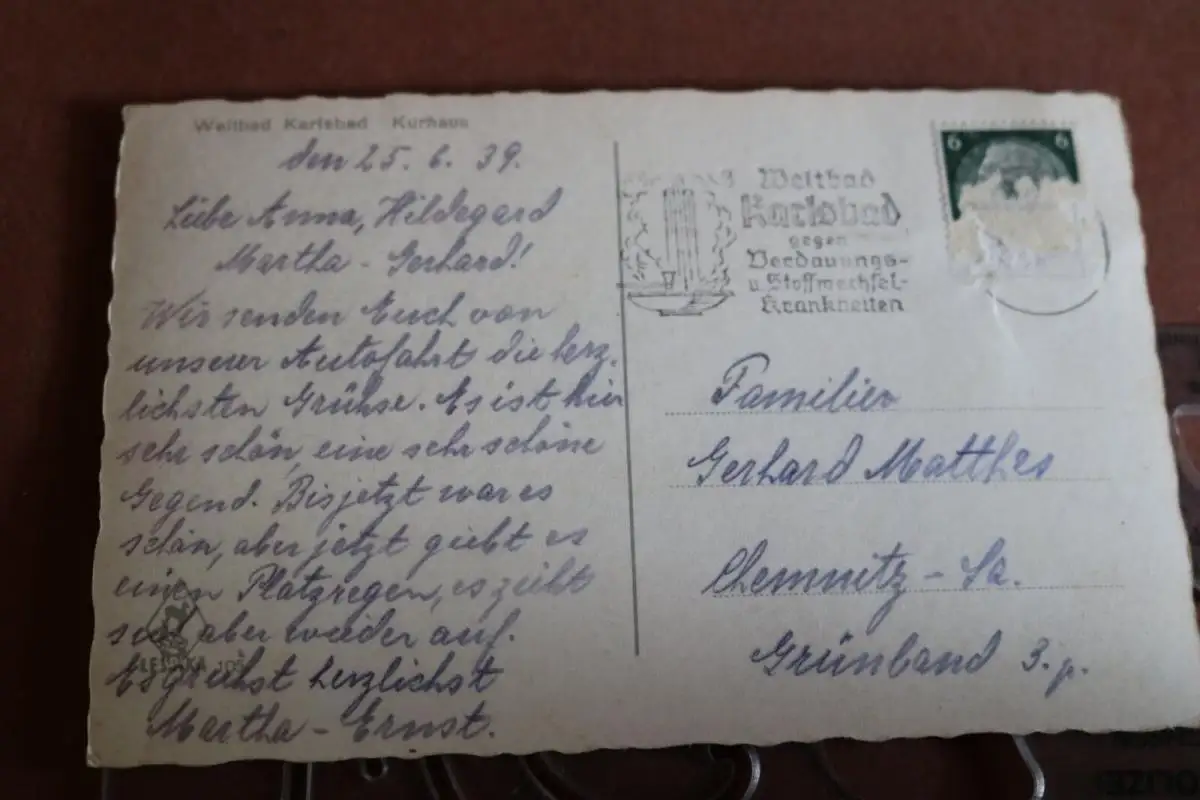 Weltbad Karlsbad Kurhaus
den 25. 6. 39.
Liebe Anna, Hildegard
Martha - Gerhard!
Wir senden Euch von
unserer Autofahrt die herz-
lichsten Grühse. Es ist hier
sehr schön, eine sehr schöne
Gegend. Bis jetzt war es
schön, aber jetzt giebt es
einen Platzregen, es zieht
sich aber wieder auf.
Es grühst herzlichst
Martha - Ernst.
Weltbad
Karlsbad
gegen
Verdauungs-
u. Stoffwechsel-
Krankheiten
6 6
Familien
Gerhard Matthes
Chemnitz - Sa.
Grünband 3. p.